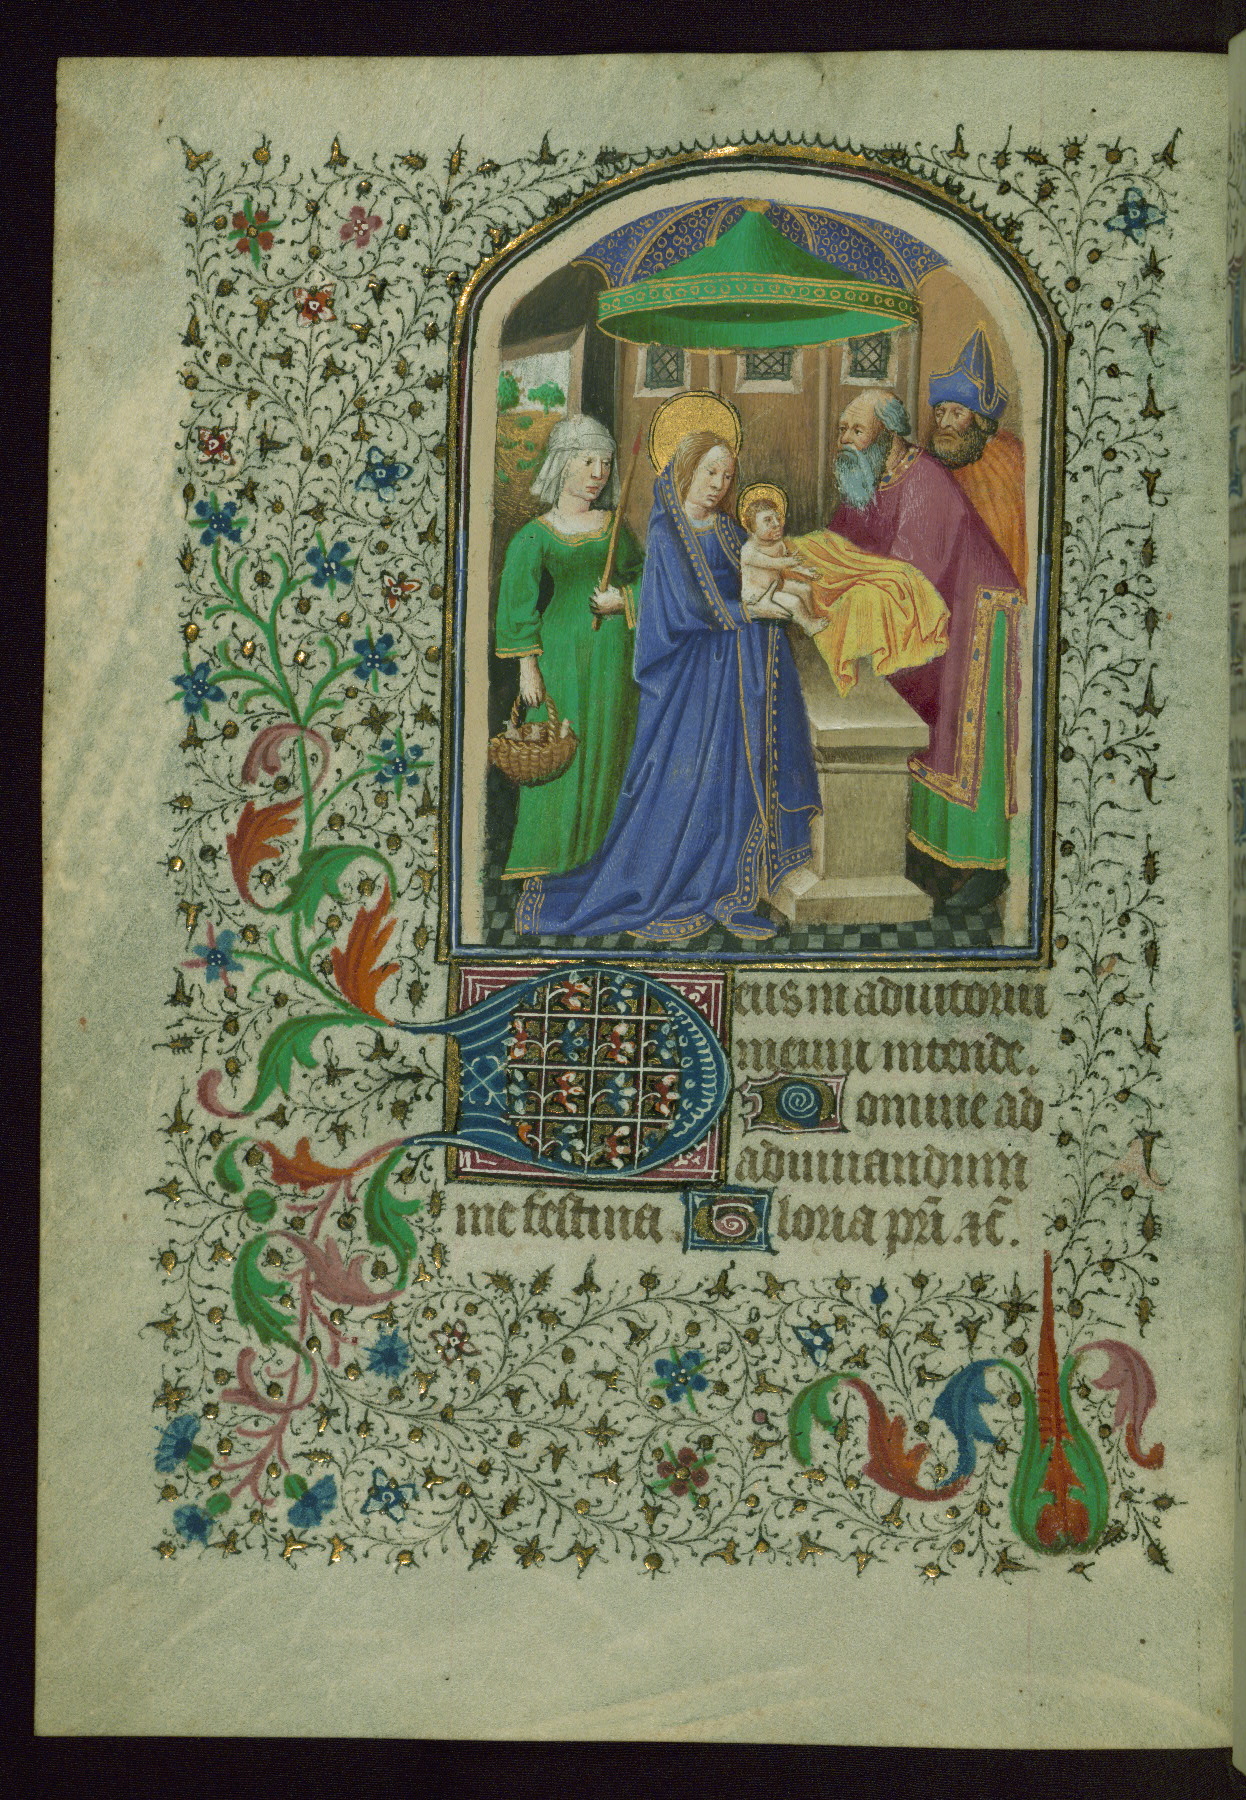 Deus in adiutoriu
meum intende.
Domine ad
adiuuandum
me festina. Gloria pr̄i. ⁊c̄.